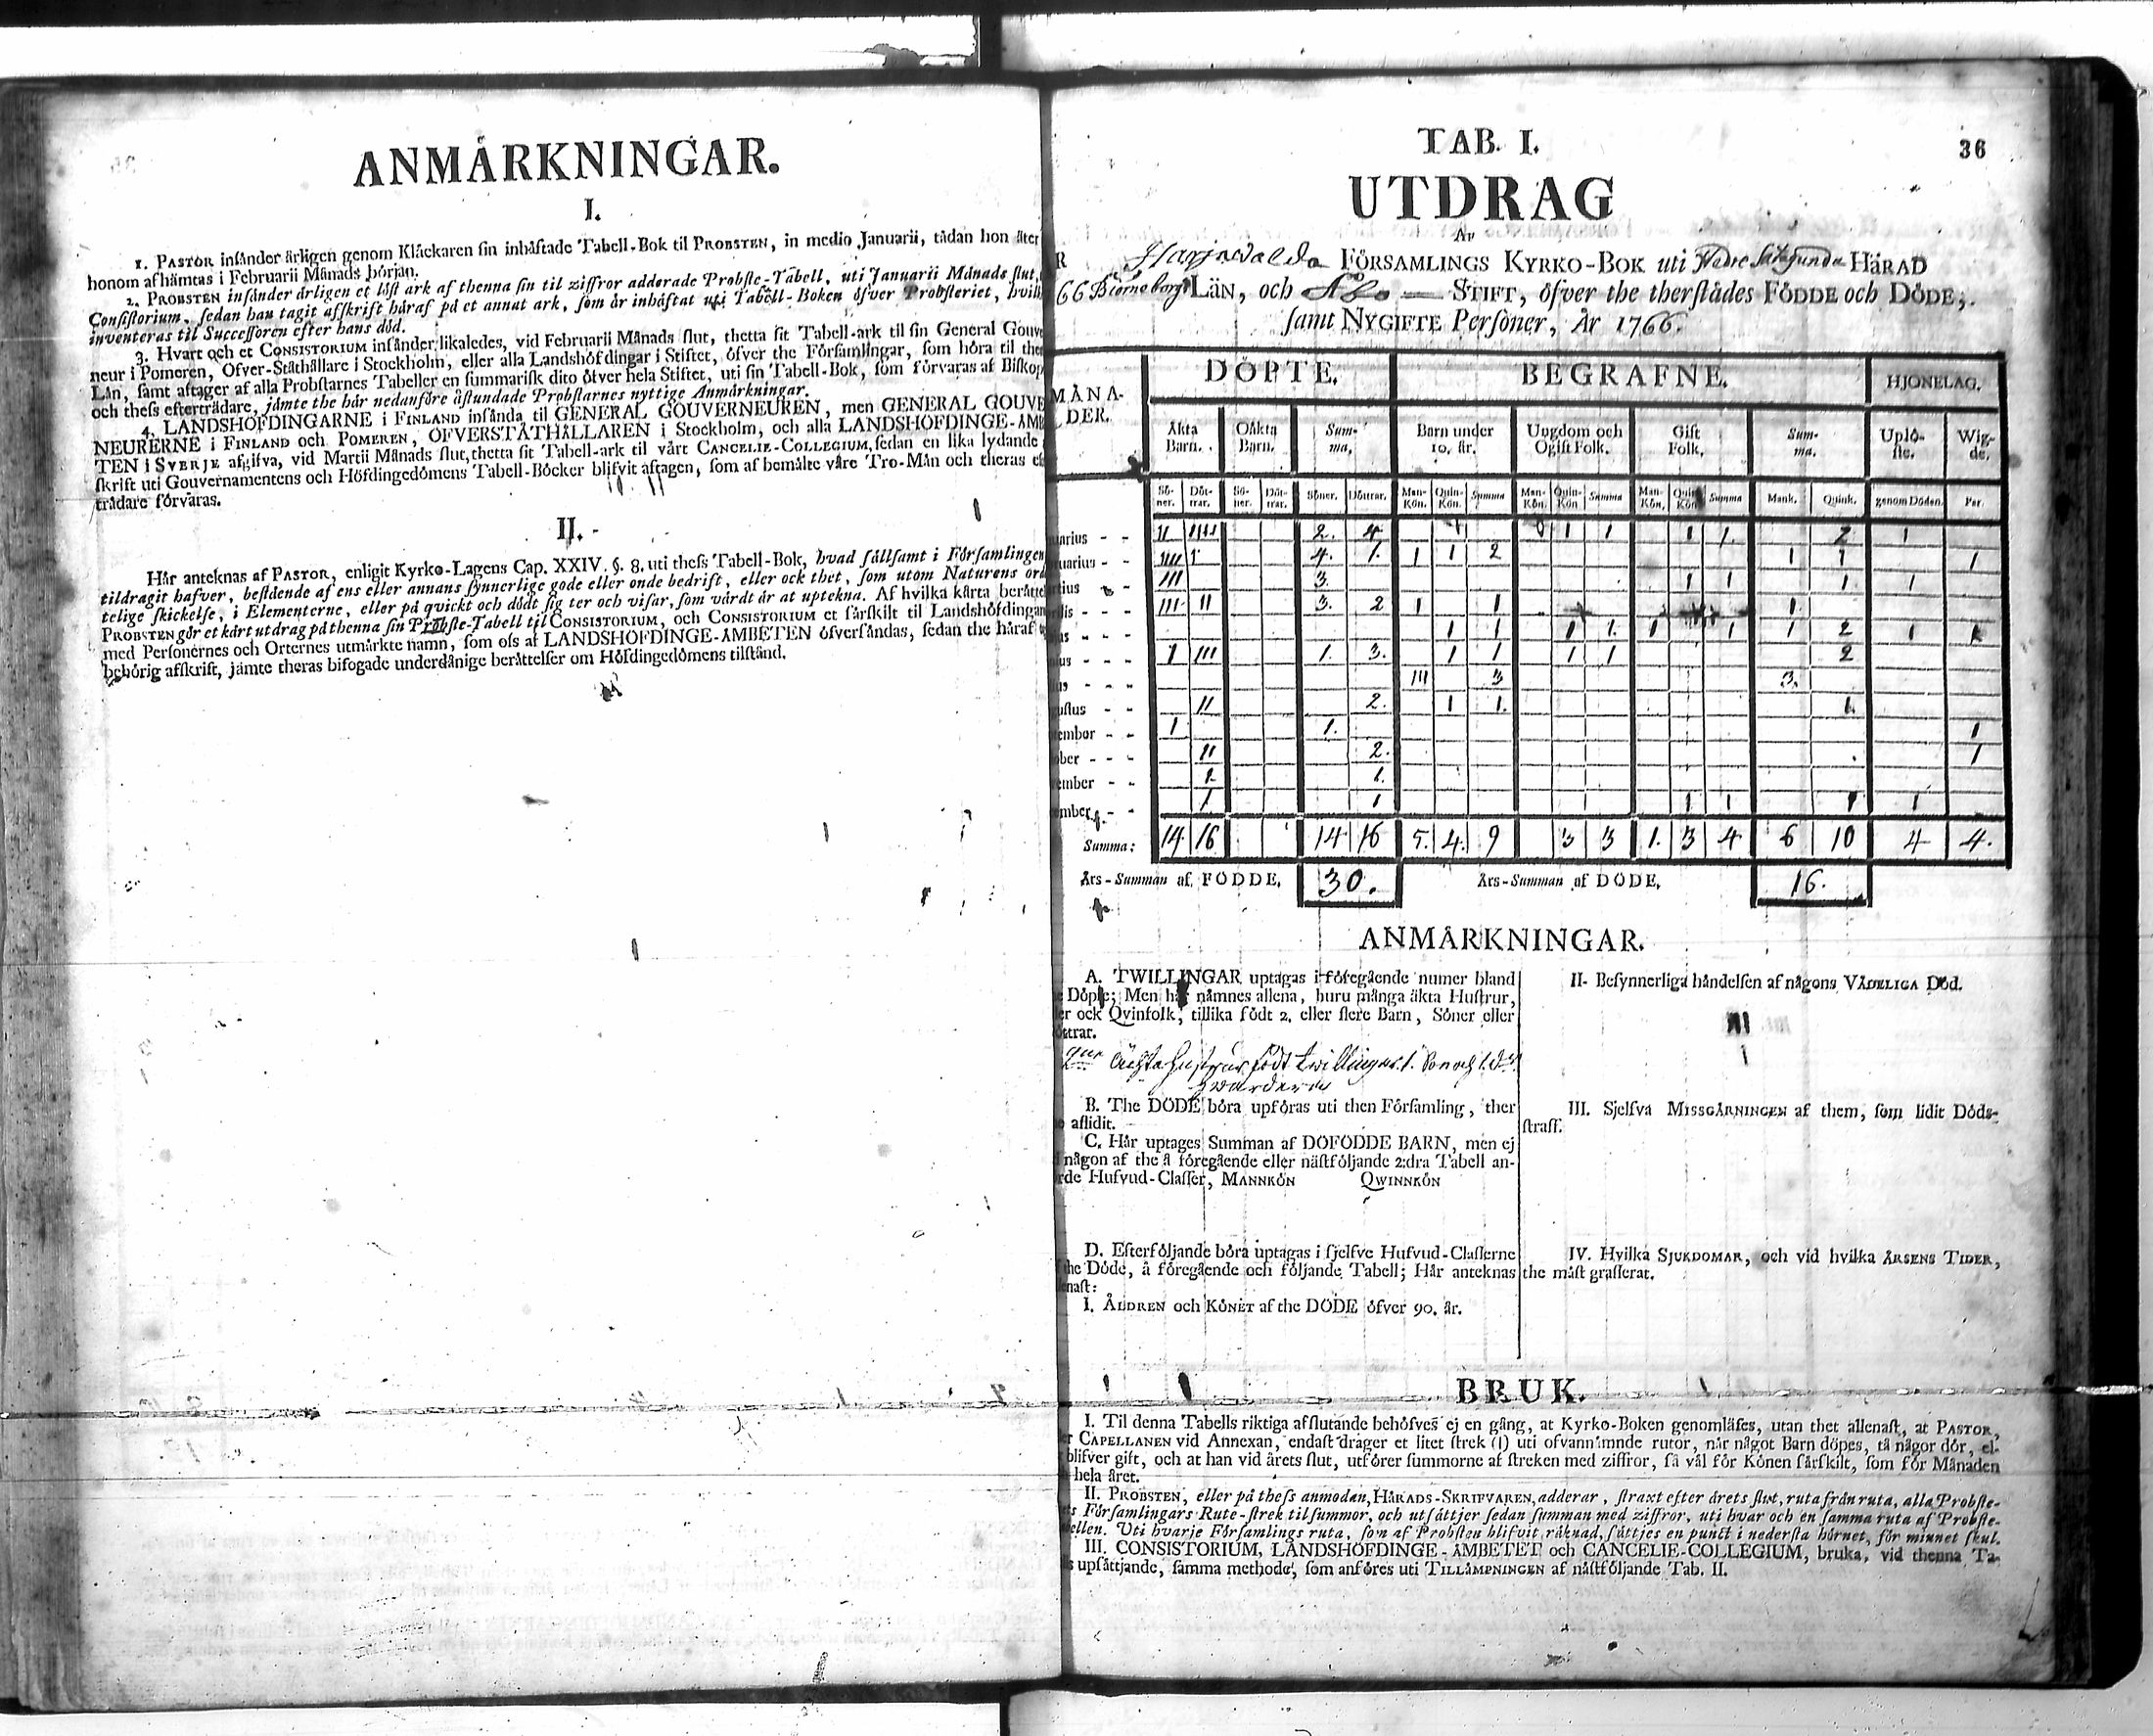 ANMÅRKNINGAR.
I.
1. PASTOR insånder årligen genom Klåckaren sin inhåftade Tabell-Bok til PROBSTEN, in medio Januarii, tådan hon åter
honom afhämtas i Februarii Månads början.
2. PROBSTEN insånder årligen et löst ark af thenna sin til ziffror adderade Probste-Tabell, uti Januarii Månads slut,
Consistorium, sedan han tagit afskrift håraf på et annat ark, som år inhåftat uti Tabell-Boken öfver Probsteriet, hvilk
inventeras til Successoren efter hans död.
3. Hvart och et CONSISTORIUM insånder likaledes, vid Februarii Månads slut, thetta sit Tabell-ark til sin General Gouve
neur i Pomeren, Ofver-Ståthållare i Stockholm, eller alla Landshöfdingar i Stiftet, öfver the Församlingar, som höra til the
Län, samt aftager af alla Probstarnes Tabeller en summarisk dito öfver hela Stiftet, uti sin Tabell-Bok, som förvaras af Biskop
och thess efterträdare, jämte the hår nedanföre åstundade Probstarnes nyttige Anmårkningar.
4. LANDSHÖFDINGARNE i FINLAND insånda til GENERAL GOUVERNEUREN, men GENERAL GOUVE
NEURERNE i FINLAND och POMEREN, OFVERSTÅTHÅLLAREN i Stockholm, och alla LANDSHÖFDINGE-ÅMB
TEN i SVERJE afgifva, vid Martii Månads slut, thetta sit Tabell-ark til vårt CANCELIE-COLLEGIUM, sedan en lika lydande
skrift uti Gouvernamentens och Höfdingedömens Tabell-Böcker blifvit aftagen, som af bemålte våre Tro-Mån och theras ef
trådare förvaras.
II.
Hår anteknas af PASTOR, enligit Kyrko-Lagens Cap. XXIV. §. 8. uti thess Tabell-Bok, hvad sållsamt i Församlingen
tildragit hafver, bestående af ens eller annans synnerlige gode eller onde bedrift, eller ock thet, som utom Naturens ord
telige skickelse, i Elementerne, eller på quickt och dödt sig ter och visar, som vårdt år at uptekna. Af hvilka kårta beråtte
PROBSTEN gör et kårt utdrag på thenna sin Probste-Tabell til CONSISTORIUM, och CONSISTORIUM et sårskilt til Landshöfdingan
med Personernes och Orternes utmårkte namn, som oss af LANDSHÖFDINGE-ÅMBETEN öfversåndas, sedan the håraf
behörig afskrift, jämte theras bifogade underdånige beråttelser om Höfdingedömens tilstånd.
TAB. I.
36
UTDRAG
Av
FÖRSAMLINGS KYRKO-BOK uti Nedre Satagunda HÄRAD
66 Biörneborgs LÄN, och Åbo STIFT, öfver the therstådes FÖDDE och DÖDE;
samt NYGIFTE Personer, År 1766.
MÅNA-DER. DÖPTE. BEGRAFNE. HJONELAG.
Åkta Barn. Oåkta Barn. Sum-ma. Barn under 10. år. Ungdom och Ogift Folk. Gift Folk. Sum-ma. Uplö-ste. Wig-de.
Sö-ner. Döt-trar. Sö-ner. Döt-trar. Söner. Döttrar. Man-Kön. Quin-Kön. Summa Man-Kön. Quin-Kön Summa Man-Kön. Quin-Kön Summa Mank. Quink. genom Döden. Par.
uarius - - II IIII 2. 4 1 1 1 1. 2 1
uarius - - IIII 1 4. 1. 1 1 2 1 1 1
rtius - III 3. 1 1 1 1
ilis - - - III II 3. 2 1 1 1
us - - - 1 1 1 1. 1 1 1 2 1 1
ius - - - 1 III 1. 3. 1 1 1 1 2
us - - - III 3 3.
ustus - - II 2. 1 1. 1.
tember - - 1 1. 1
ober - - - II 2. 1
ember - - 1 1.
ember - - 1 1 1 1 1 1
Summa: 14 16 14 16 5. 4. 9 3 3 1. 3 4 6 10 4 4.
Års-Summan af FÖDDE, 30. Års-Summan af DÖDE, 16.
ANMÅRKNINGAR.
A. TWILLINGAR uptagas i föregående numer bland
Döpte; Men hår nåmnes allena, huru många äkta Hustrur,
er ock Qvinfolk, tillika födt 2. eller flere Barn, Söner eller
öttrar.
Ächta hustrur födt twillingar 1. Son och 1. dr.
B. The DÖDE böra upföras uti then Församling, ther
aflidit.
C. Hår uptages Summan af DÖFÖDDE BARN, men ej
någon af the å föregående eller nästföljande 2:dra Tabell an-
rde Hufvud-Classer, MANNKÖN QWINNKÖN
D. Efterföljande böra uptagas i sjelfve Hufvud-Classerne
the Döde, å föregående och följande Tabell; Hår anteknas
enast:
I. ÅLDREN och KÖNET af the DÖDE öfver 90. år.
II- Besynnerliga håndelsen af någons VÅDELIGA Död.
III. Sjelfva MISSGÅRNINGEN af them, som lidit Döds-
straff.
IV. Hvilka SJUKDOMAR, och vid hvilka ÅRSENS TIDER,
the måst grasserat.
BRUK.
I. Til denna Tabells riktiga afslutande behöfves ej en gång, at Kyrko-Boken genomläses, utan thet allenast, at PASTOR,
er CAPELLANEN vid Annexan, endast drager et litet strek (|) uti ofvannämnde rutor, når något Barn döpes, tå någor dör, el-
blifver gift, och at han vid årets slut, utförer summorne af streken med ziffror, så väl för Könen sårskilt, som för Månaden
hela året.
II. PROBSTEN, eller på thess anmodan, HÄRADS-SKRIFVAREN, adderar, straxt efter årets slut, ruta från ruta, alla Probste-
ts Församlingars Rute-strek til summor, och utsåttjer sedan summan med ziffror, uti hvar och en samma ruta af Probste-
ellen. Uti hvarje Församlings ruta, som af Probsten blifvit råknad, såttjes en punct i nedersta hörnet, för minnet skul.
III. CONSISTORIUM, LANDSHÖFDINGE-ÅMBETET och CANCELIE-COLLEGIUM, bruka, vid thenna Ta-
s upsåttjande, samma methode, som anföres uti TILLÅMPNINGEN af nåstföljande Tab. II.